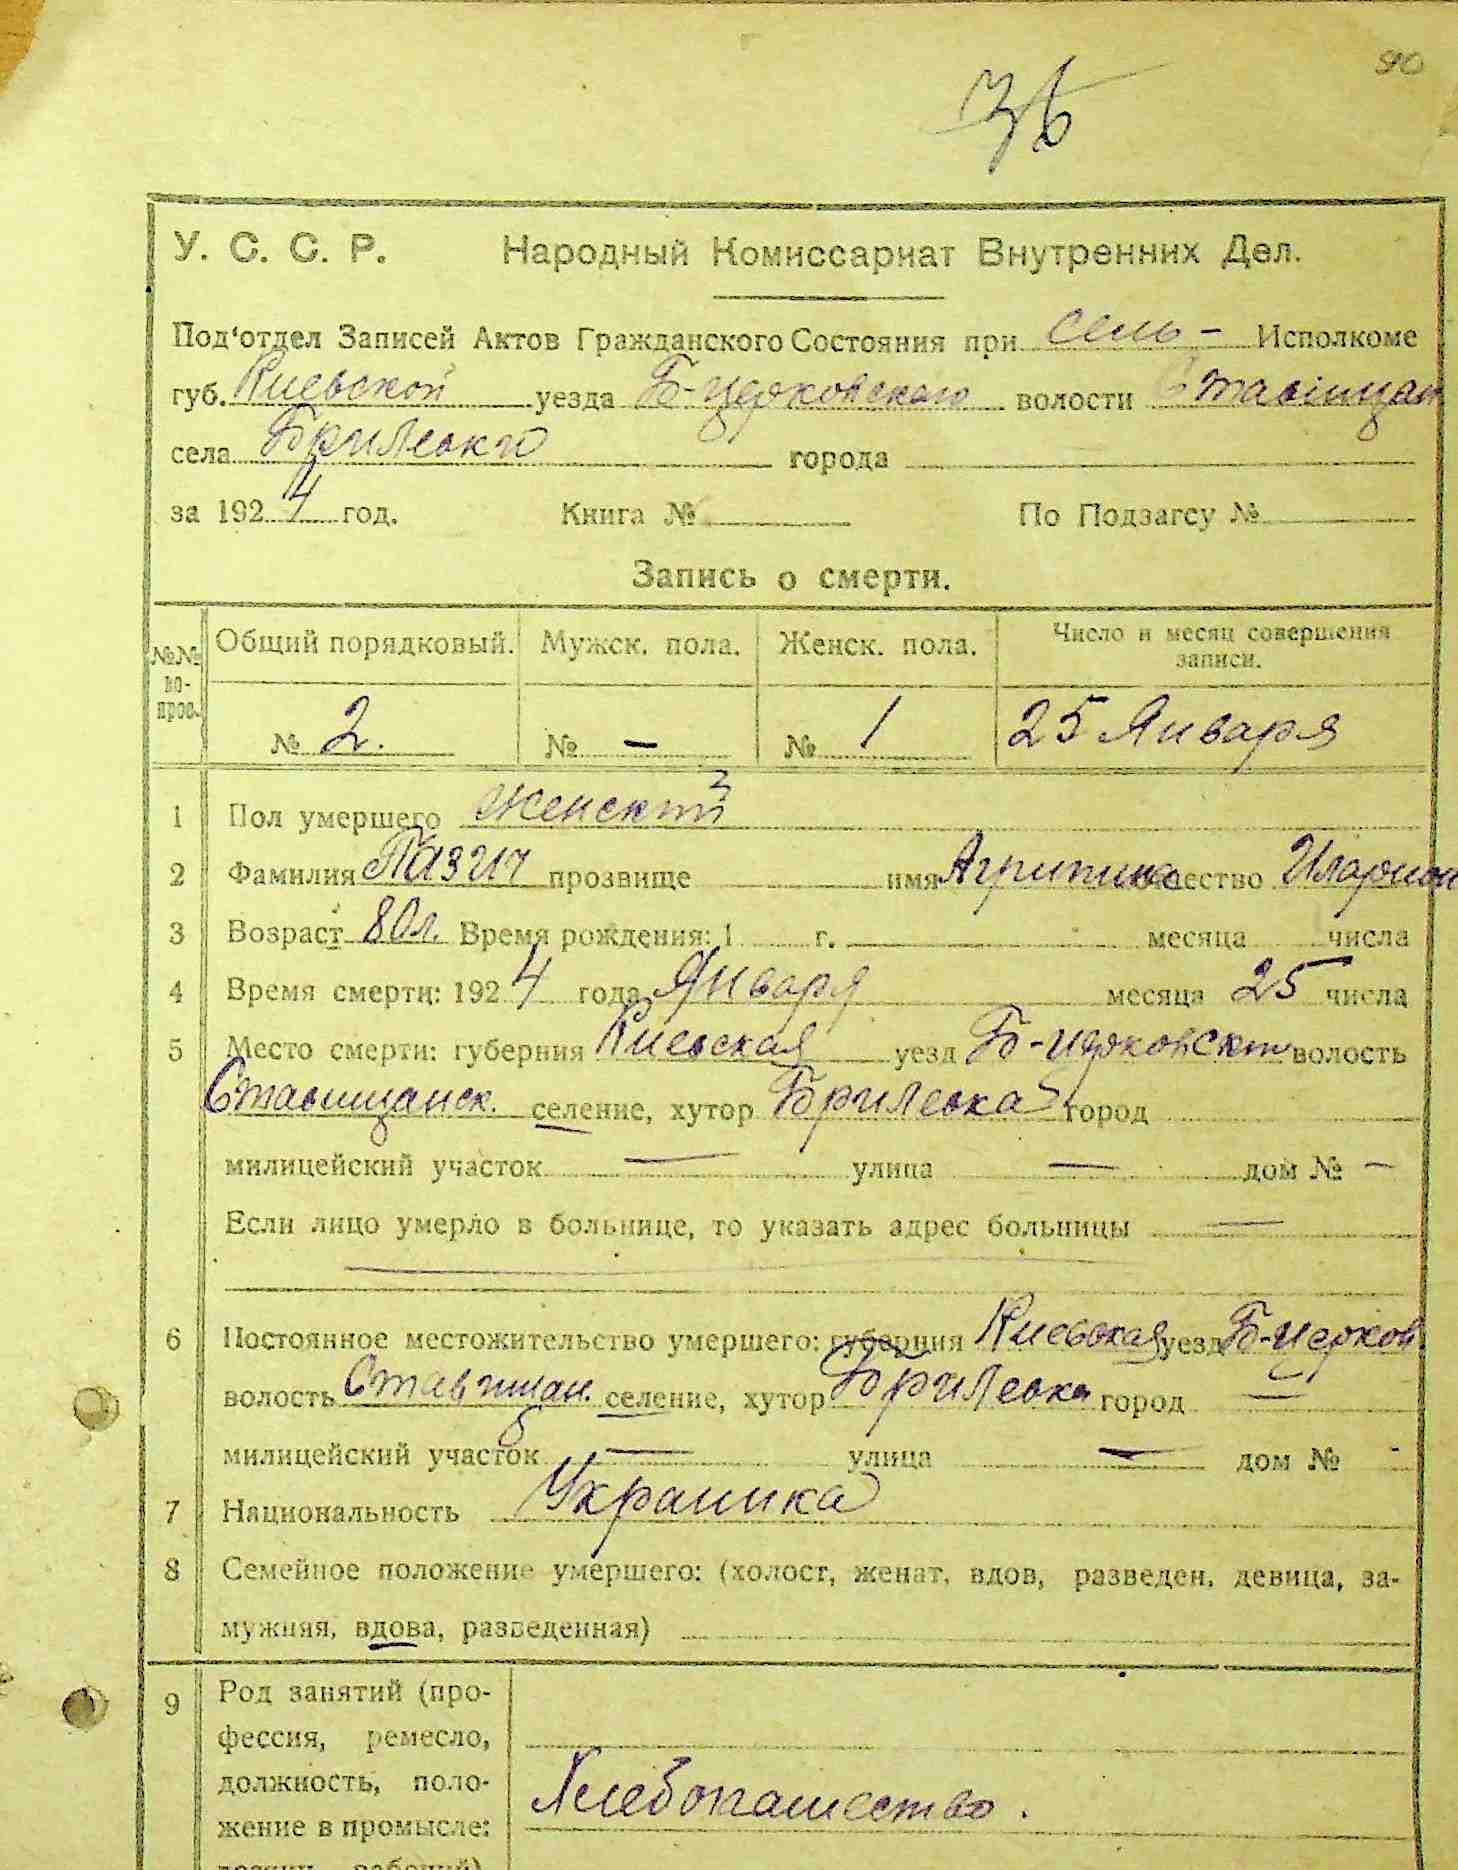 90
36
У. С. С. Р. Народный Комиссариат Внутренних Дел.
Под‘отдел Записей Актов Гражданского Состояния при сель- Исполкоме
губ. Киевской уезда Б-церковского волости Ставищан
села Брилевки города
за 1924 год. Книга № По Подзагсу №
Запись о смерти.
№№ вопрос. Общий порядковый. Мужск. пола. Женск. пола. Число и месяц совершения записи.
№ 2. № — № 1 25 Января
1 Пол умершего женский
2 Фамилия Пазич прозвище имя Агрипина отчество Иларион
3 Возраст 80 л. Время рождения: 1 г. месяца числа
4 Время смерти: 1924 года Января месяца 25 числа
5 Место смерти: губерния Киевская уезд Б-церковский волость
Ставищанск. селение, хутор Брилевка город
милицейский участок — улица — дом № -
Если лицо умерло в больнице, то указать адрес больницы —
6 Постоянное местожительство умершего: губерния Киевская уезд Б-церков
волость Ставищан. селение, хутор Брилевка город —
милицейский участок — улица — дом № -
7 Национальность Украинка
8 Семейное положение умершего: (холост, женат, вдов, разведен, девица, за-
мужняя, вдова, разведенная)
9 Род занятий (про-
фессия, ремесло,
должность, поло-
жение в промысле:
Хлебопашество.